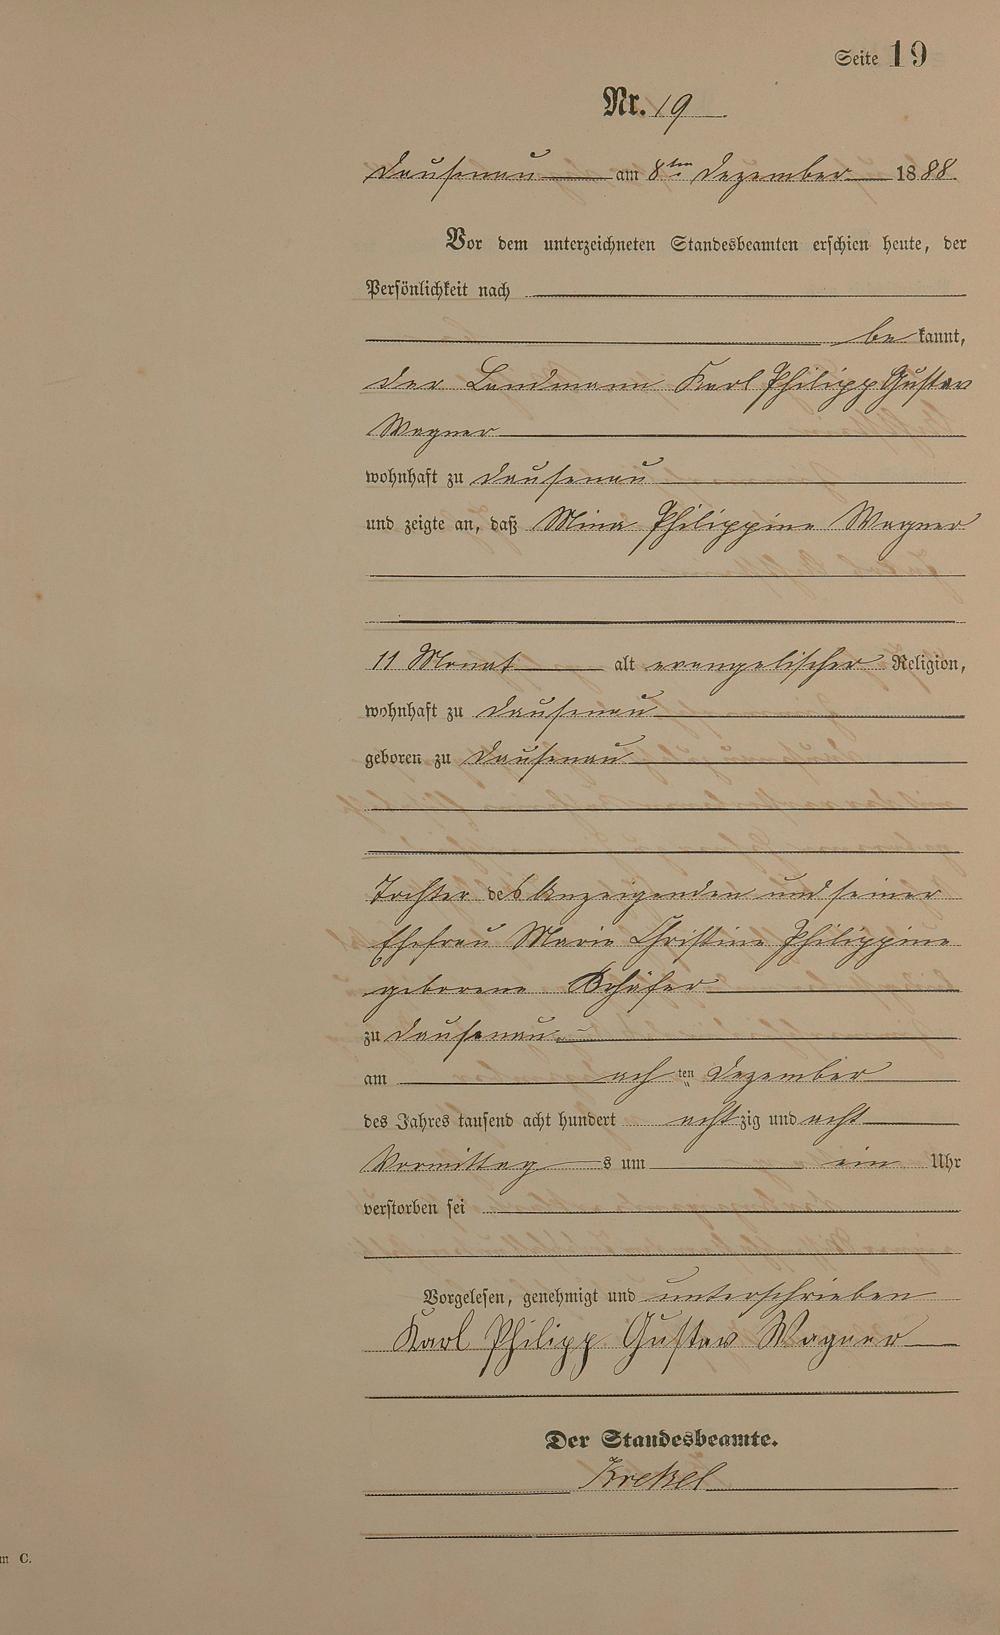 Seite 19
Nr. 19
Dausenau am 8ten Dezember 1888.
Vor dem unterzeichneten Standesbeamten erschien heute, der
Persönlichkeit nach
be kannt,
der Landmann Karl Philipp Gustav
Wagner
wohnhaft zu Dausenau
und zeigte an, daß Mina Philippine Wagner
11 Monat alt evangelischer Religion,
wohnhaft zu Dausenau
geboren zu Dausenau
Tochter des Anzeigenden und seiner
Ehefrau Marie Christine Philippine
geborene Schäfer
zu Dausenau
am ach ten Dezember
des Jahres tausend acht hundert acht zig und acht
Vormittag s um ein Uhr
verstorben sei
Vorgelesen, genehmigt und unterschrieben
Karl Philipp Gustav Wagner
Der Standesbeamte.
Krekel
m C.